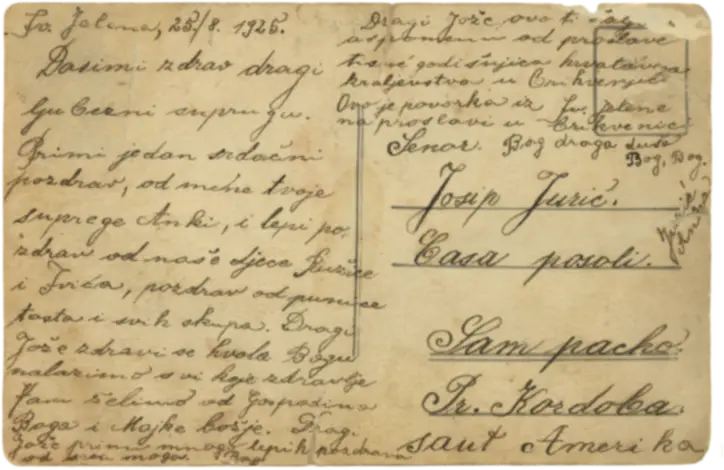 Sv. Jelena, 25./8. 1925.
Da si mi zdrav dragi
ljubezni suprugu.
Primi jedan srdačni
pozdrav, od mene tvoje
suprege Anki, i lepi po-
zdrav od naše djece Ružice
i Ivića, pozdrav od punice
tasta i svih skupa. Dragi
Jože zdravi se hvala Bogu
nalazimo svi koje zdravlje
Vam želimo od Gospodina
Boga i Majke božje. Dragi
Jože primi mnogo lepih pozdrava
od srca moga.
Dragi Jože ovo ti šaljem
uspomenu od proslave
tisuć godišnjica hrvatskoga
kraljevstva u Crikvenici
Ovo je povorka iz Sv. Jelene
na proslavi u Crikvenici
Bog draga duša
Bog, Bog.
Jurić
Anka
Senor.
Josip Jurić.
Casa posoli.
Sam pacho.
Pr. Kordoba.
saut Amerika